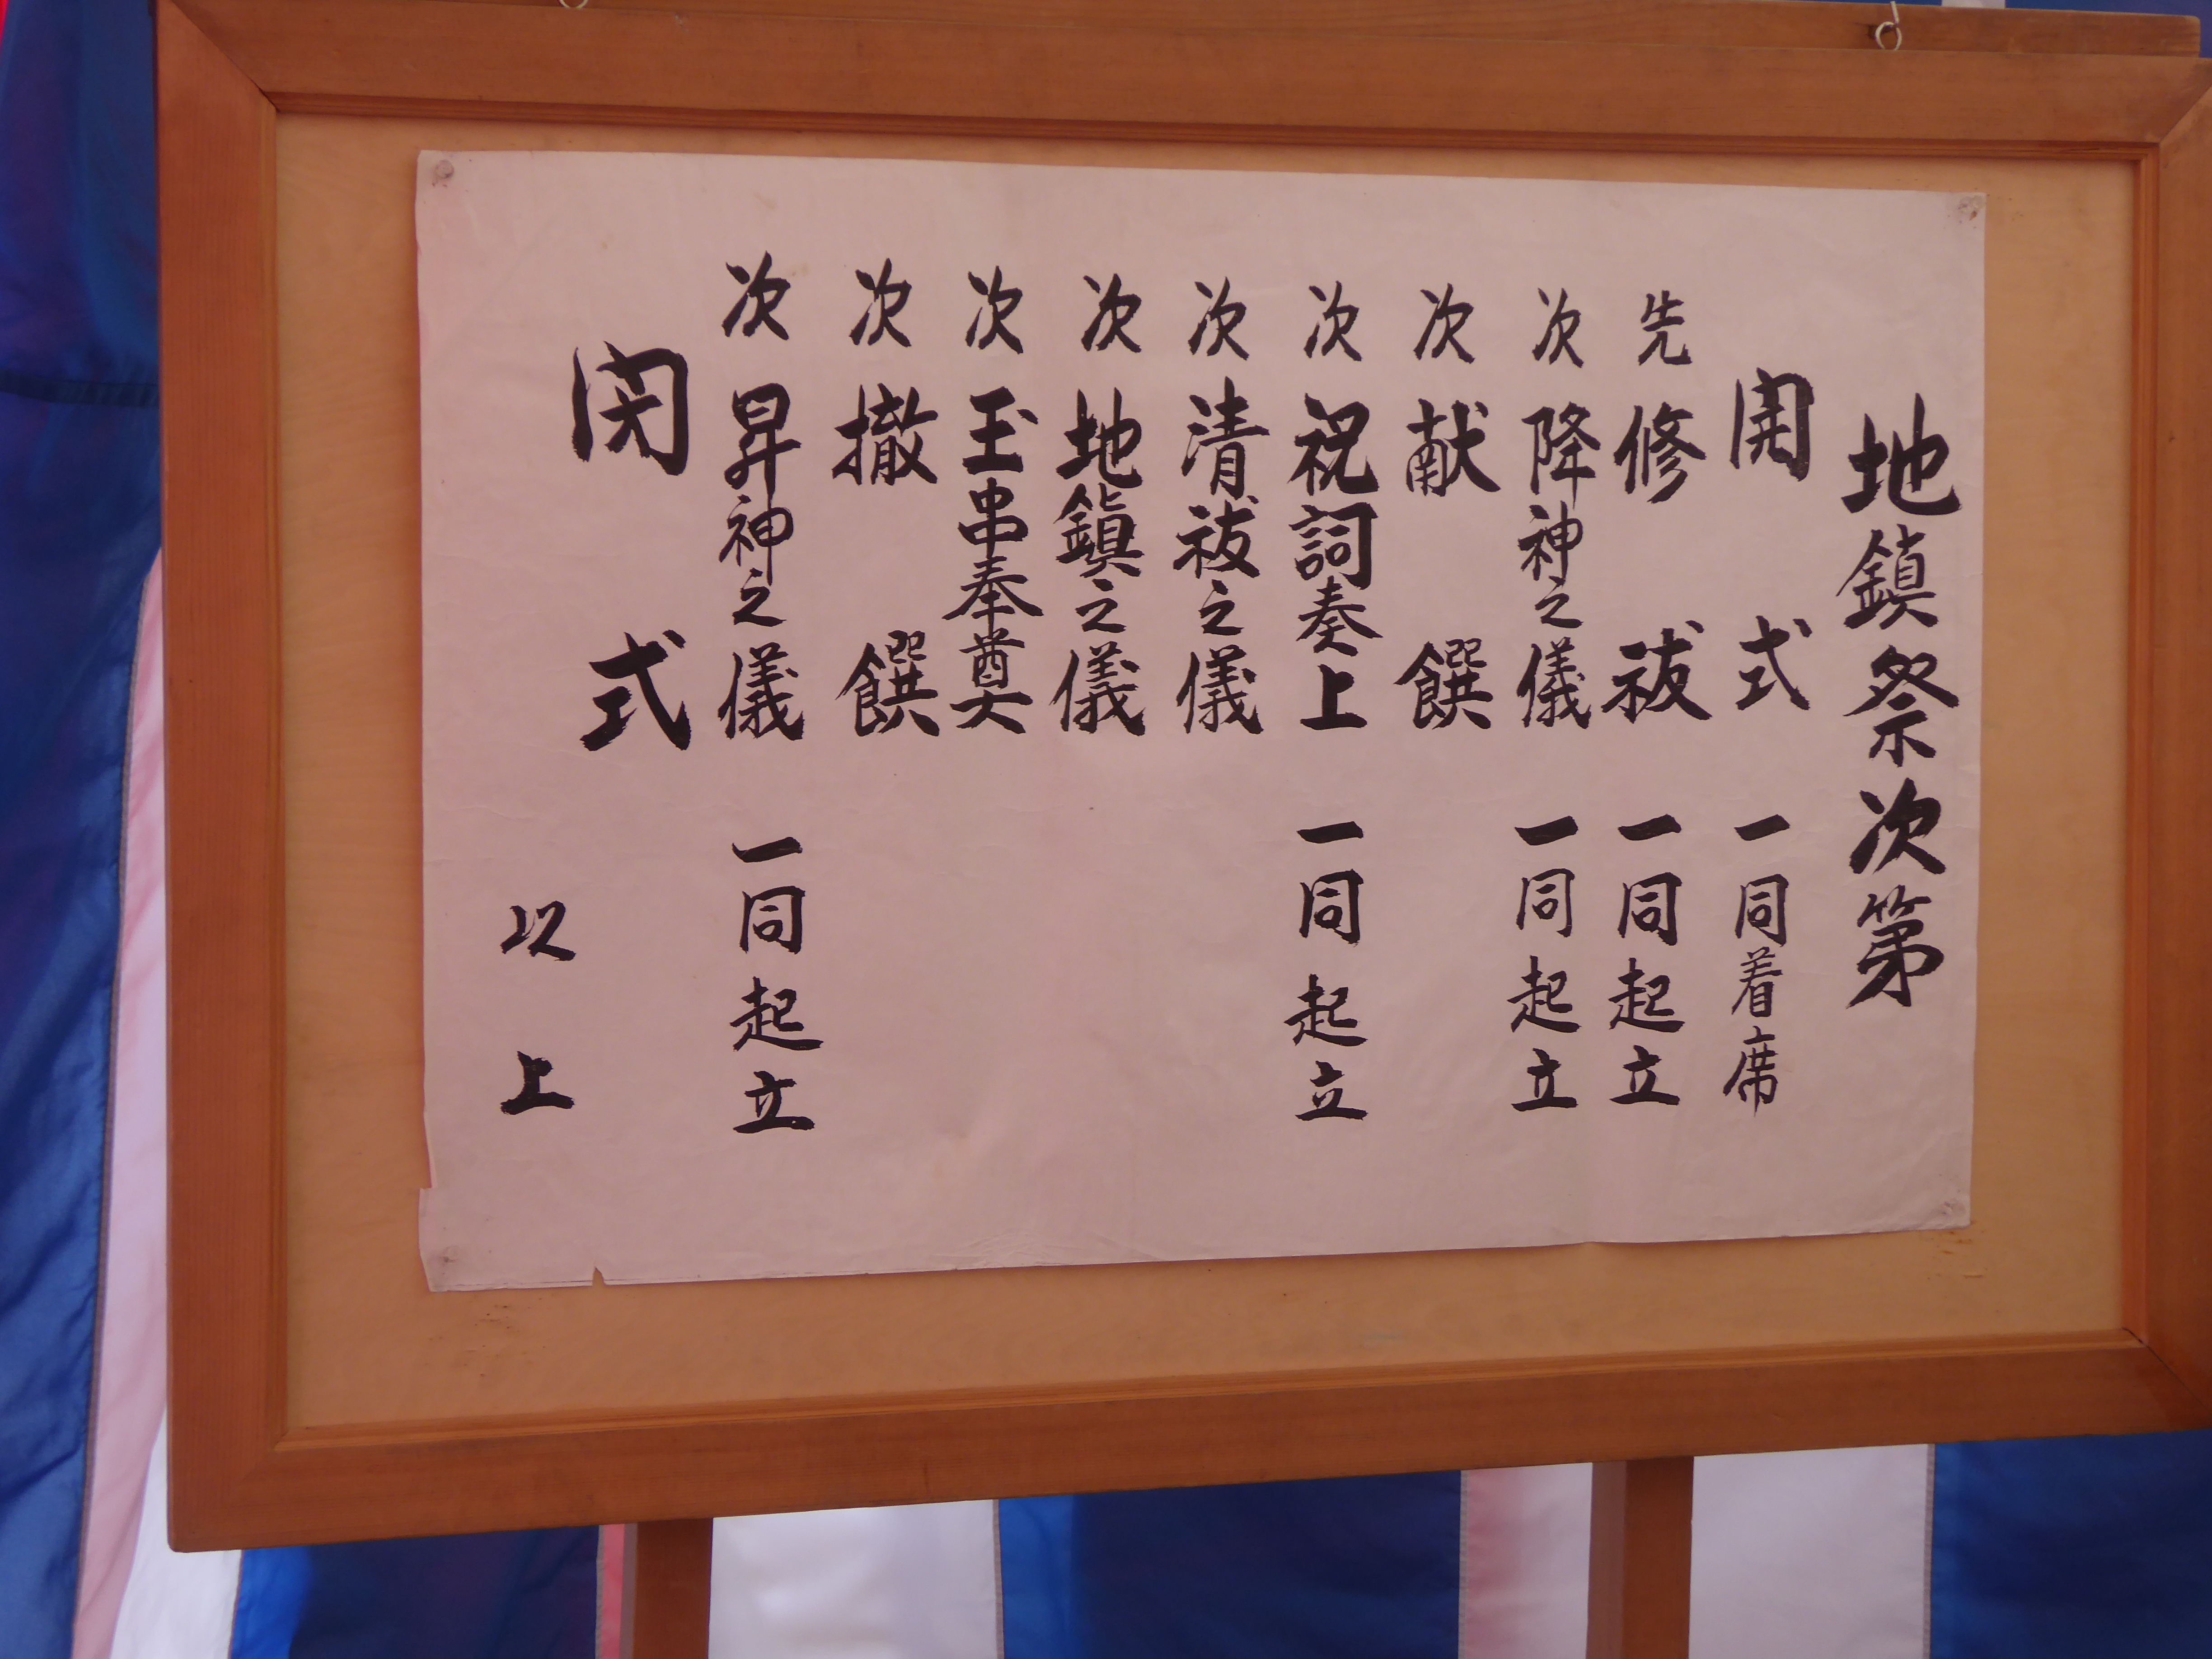 地鎮祭次第
開式 一同着席
先 修祓 一同起立
次 降神之儀 一同起立
次 献饌
次 祝詞奏上 一同起立
次 清祓之儀
次 地鎮之儀
次 玉串奉奠
次 撤饌
次 昇神之儀 一同起立
閉式
以上